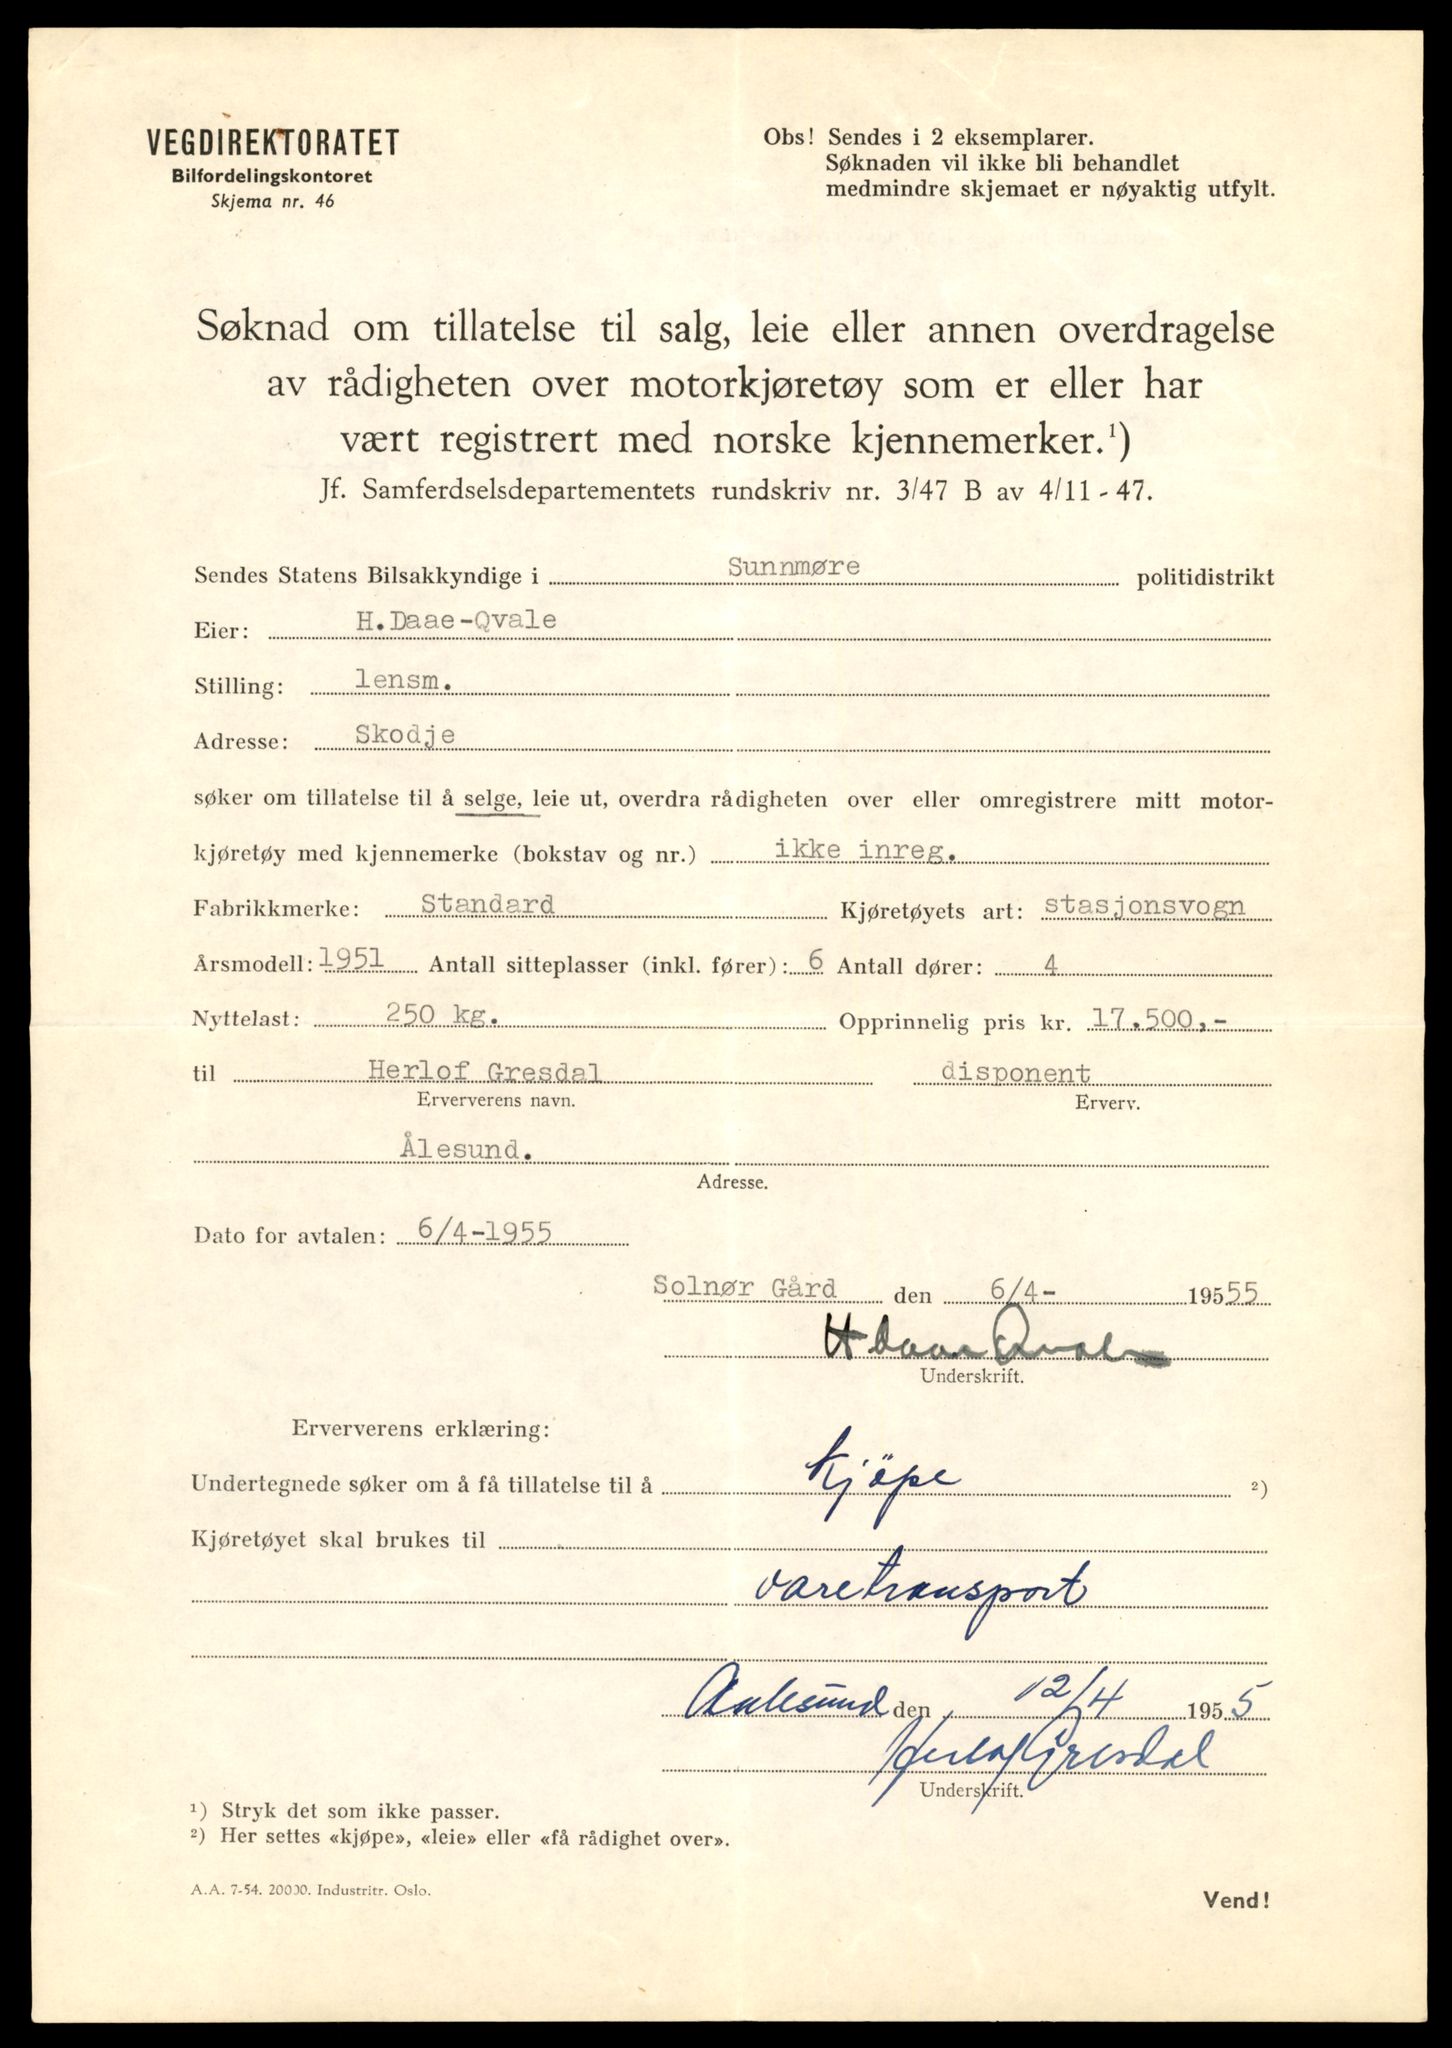 VEGDIREKTORATET
Bilfordelingskontoret
Skjema nr. 46
Obs! Sendes i 2 eksemplarer.
Søknaden vil ikke bli behandlet
medmindre skjemaet er nøyaktig utfylt.
Søknad om tillatelse til salg, leie eller annen overdragelse
av rådigheten over motorkjøretøy som er eller har
vært registrert med norske kjennemerker.¹)
Jf. Samferdselsdepartementets rundskriv nr. 3/47 B av 4/11 - 47.
Sendes Statens Bilsakkyndige i Sunnmøre politidistrikt
Eier: H.Daae-Qvale
Stilling: lensm.
Adresse: Skodje
søker om tillatelse til å selge, leie ut, overdra rådigheten over eller omregistrere mitt motor-
kjøretøy med kjennemerke (bokstav og nr.) ikke inreg.
Fabrikkmerke: Standard Kjøretøyets art: stasjonsvogn
Årsmodell: 1951 Antall sitteplasser (inkl. fører): 6 Antall dører: 4
Nyttelast: 250 kg. Opprinnelig pris kr. 17.500,-
til Herlof Gresdal disponent
Erververens navn. Erverv.
Ålesund.
Adresse.
Dato for avtalen: 6/4-1955
Solnør Gård den 6/4- 19555
H Daae Qvale
Underskrift.
Erververens erklæring:
Undertegnede søker om å få tillatelse til å kjöpe ²)
Kjøretøyet skal brukes til
varetransport
Aalesund den 12/4 1955
Herlof Gresdal
Underskrift.
¹) Stryk det som ikke passer.
²) Her settes «kjøpe», «leie» eller «få rådighet over».
A.A. 7-54. 20000. Industritr. Oslo.
Vend!